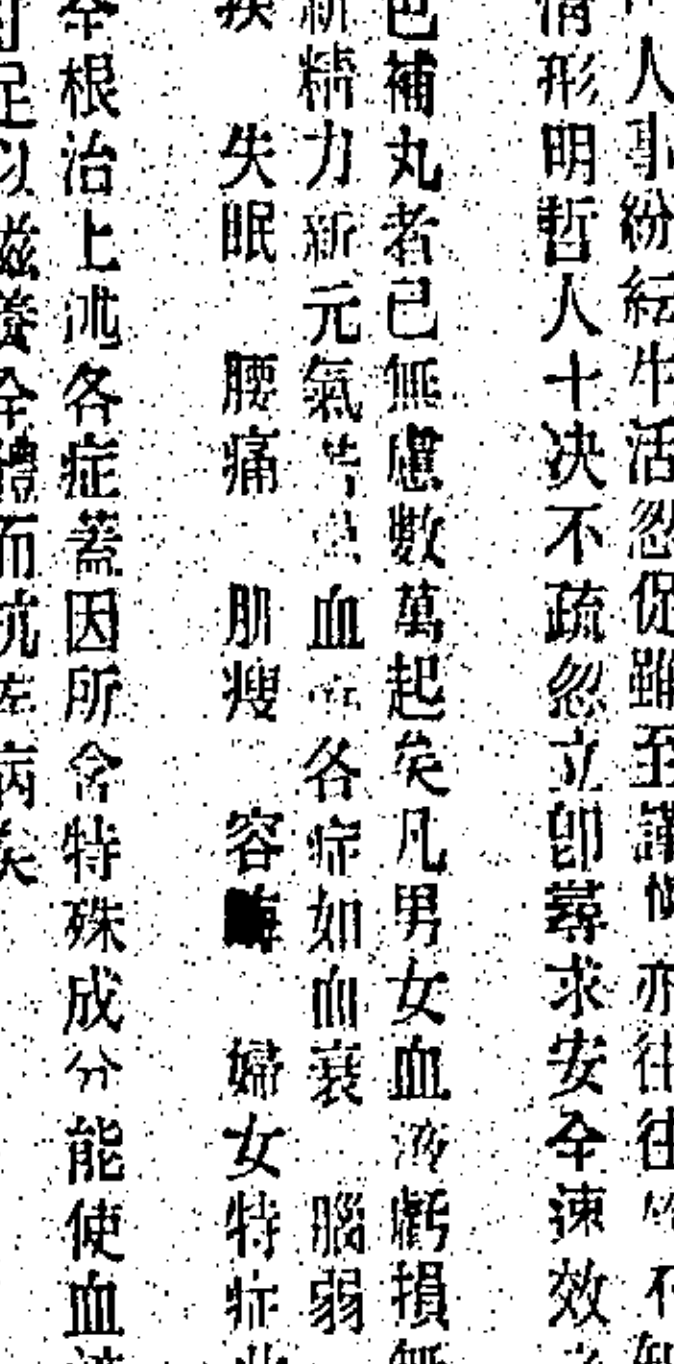 人事紛紜生活忽促雖至謹慎亦往往不知
情形明哲人士决不疏忽立卽尋求安全速效
色補丸者已無慮數萬起矣凡男女血液虧損無
新精力新元氣血各症如血衰 腦弱
失眠 腰痛 肌瘦 容 婦女特症
根治上述各症蓋因所含特殊成分能使血液
足以滋養全體而抗病矣